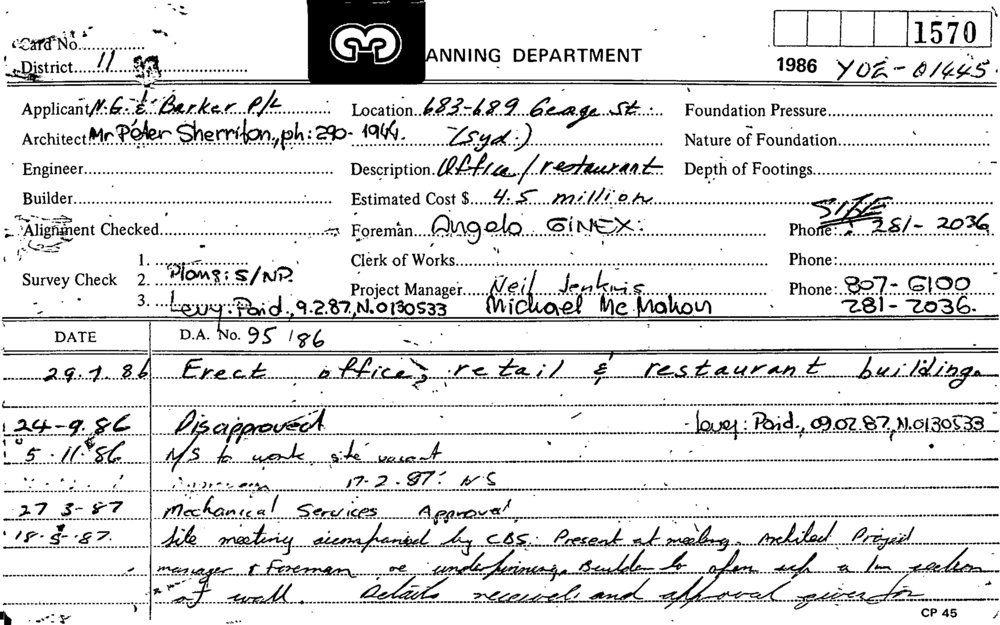 Card No.
1570
District 11
ANNING DEPARTMENT
1986 YOE-01445.
Applicant N.G. & Barker P/L Location 683-689 George St. Foundation Pressure
Architect Mr Peter Sherriton, ph: 290-1944. (Syd.) Nature of Foundation
Engineer Description Office / restaurant Depth of Footings
Builder Estimated Cost $ 4.5 million
SITE
Alignment Checked Foreman Angelo GINEX: Phone: 281-2036
1. Clerk of Works Phone:
Survey Check 2. Plans: S/NP. Project Manager Neil Jenkins Phone: 807-6100
3. Levy: Paid, 9.2.87, N.0130533 Michael McMahon 281-2036.
DATE D.A. No. 95/86
29.7.86 Erect office, retail & restaurant building.
24-9.86 Disapproved Levy: Paid, 09.02.87, N.0130533
5.11.86 N/S to work, site vacant
17-2-87: N S
27 3-87 Mechanical Services Approval
18-5-87. Site meeting accompanied by CBS. Present at meeting. Architect Project
manager & Foreman re underpinning. Builder to open up a 1m section
of wall. Details received and approval given for
CP 45